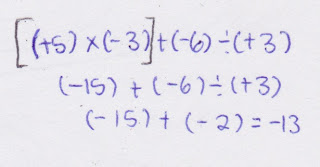 [(+5) × (-3)] + (-6) ÷ (+3)
(-15) + (-6) ÷ (+3)
(-15) + (-2) = -13